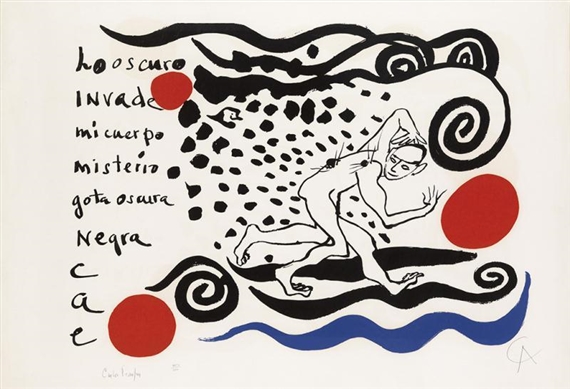 Lo oscuro
INVADE
mi cuerpo
misterio
gota oscura
Negra
C
a
e
CA